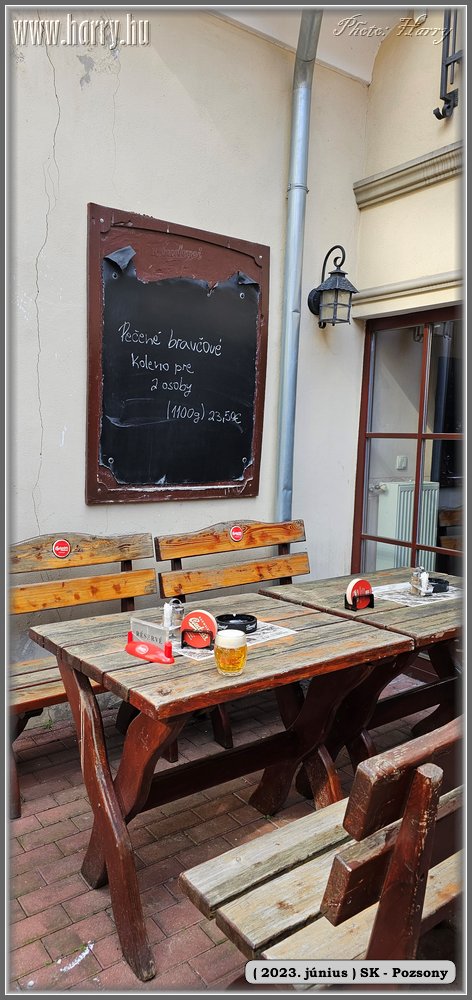 www.harry.hu
Photo: Harry
Pečené bravčové
Koleno pre
2 osoby
(1100g) 23,50€
RÉSERVÉ
( 2023. június ) SK - Pozsony